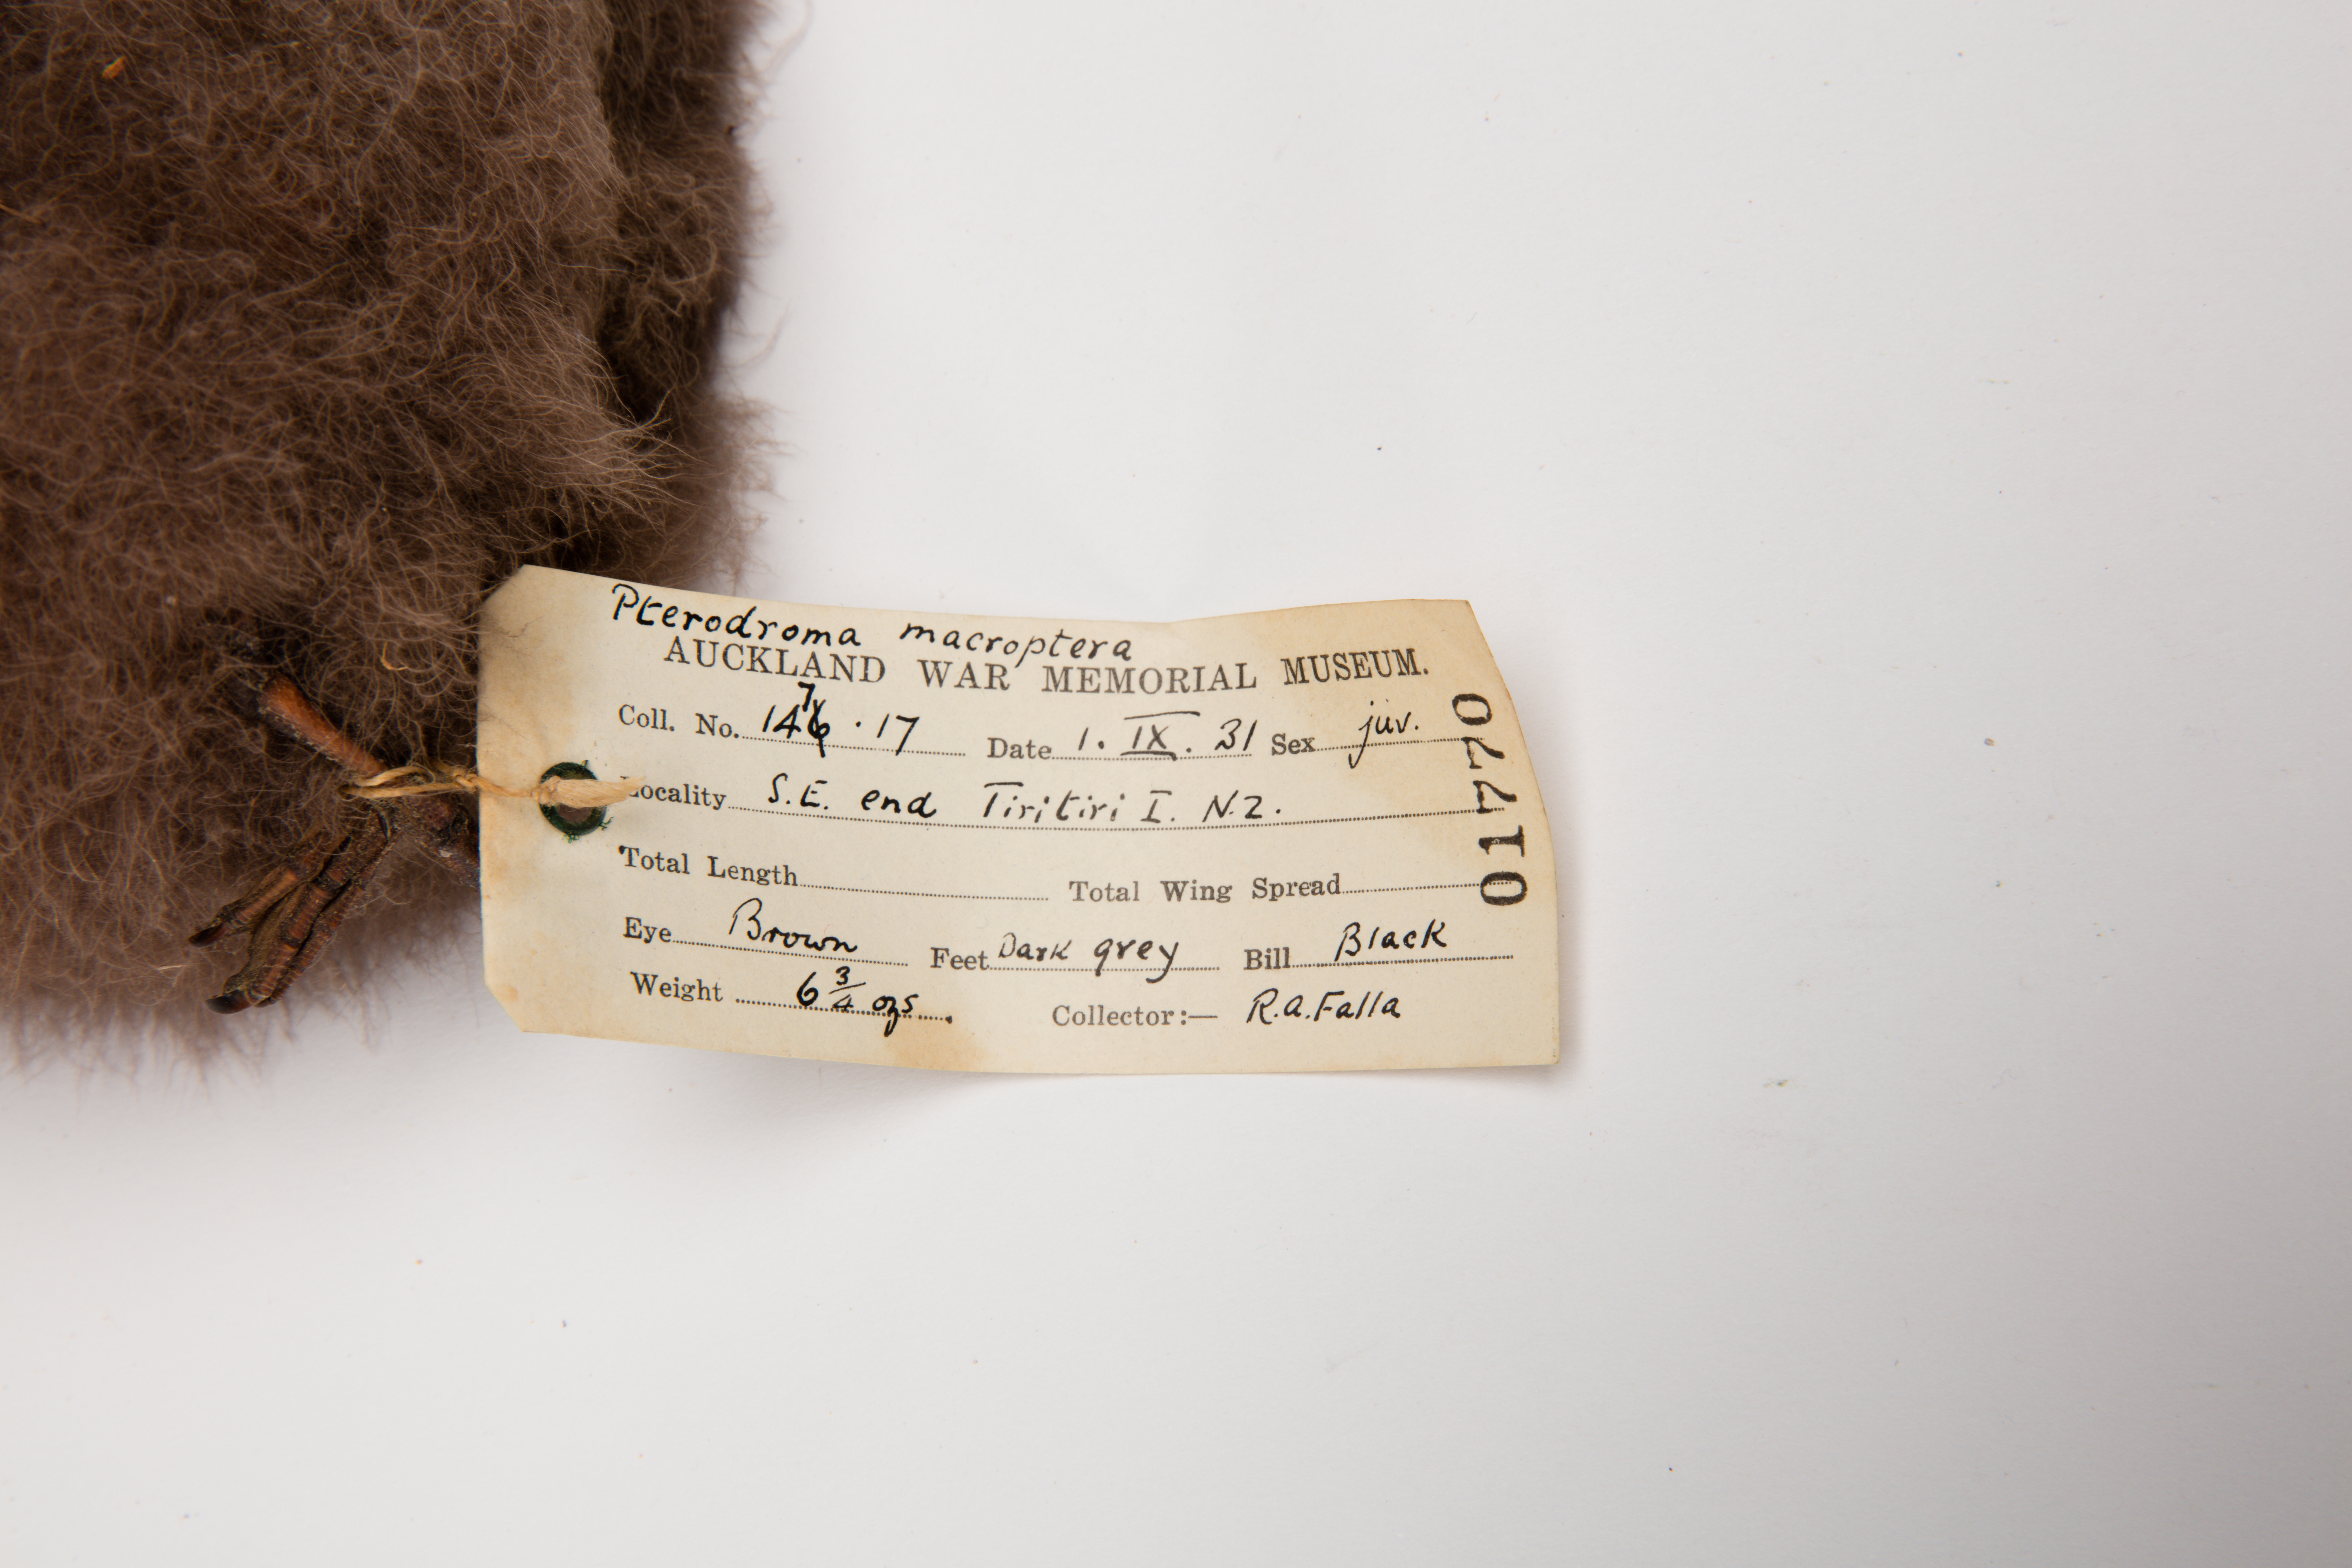 Pterodroma macroptera
AUCKLAND WAR MEMORIAL MUSEUM.
Coll. No. 147.17 Date 1. IX. 31 Sex juv.
Locality S.E. end Tiritiri I. N.Z.
Total Length Total Wing Spread
Eye Brown Feet Dark grey Bill Black
Weight 6 3/4 ozs. Collector:— R.A. Falla
01770